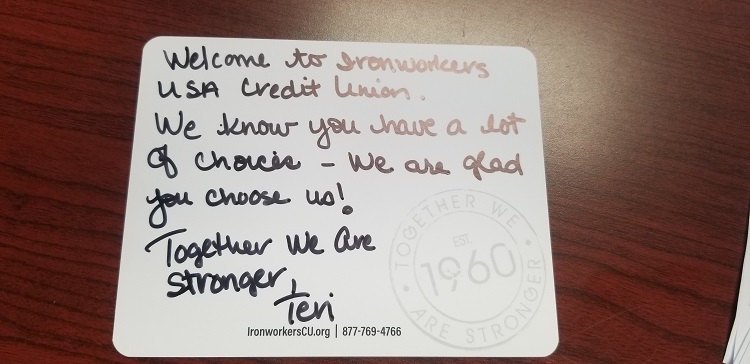 Welcome to Ironworkers
USA Credit Union.
We know you have a lot
of choices - We are glad
you choose us!
Together We Are
stronger,
Teri
IronworkersCU.org | 877-769-4766
• TOGETHER WE •
ARE STRONGER
EST.
1960